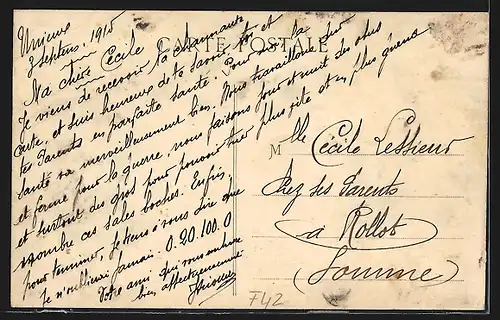 CARTE POSTALE
Unieux
3 Septembre 1915
Ma chère Cécile
Je viens de recevoir ta charmante
carte, et suis heureux de te savoir toi et
tes Parents en parfaite santé. Pour nous la
santé va merveilleusement bien. Nous travaillons sur
et ferme pour la guerre, nous faisons jour et nuit des obus
et surtout des gros pour pouvoir tuer plus vite et en plus grand
nombre ces sales boches. Enfin,
pour terminer, je tiens à vous dire que
je n'oublierai jamais 0.20.100.0
Votre ami qui vous embrasse
bien affectueusement
Mlle Cécile Lessieur
chez ses Parents
à Rollot
(Somme)
F42